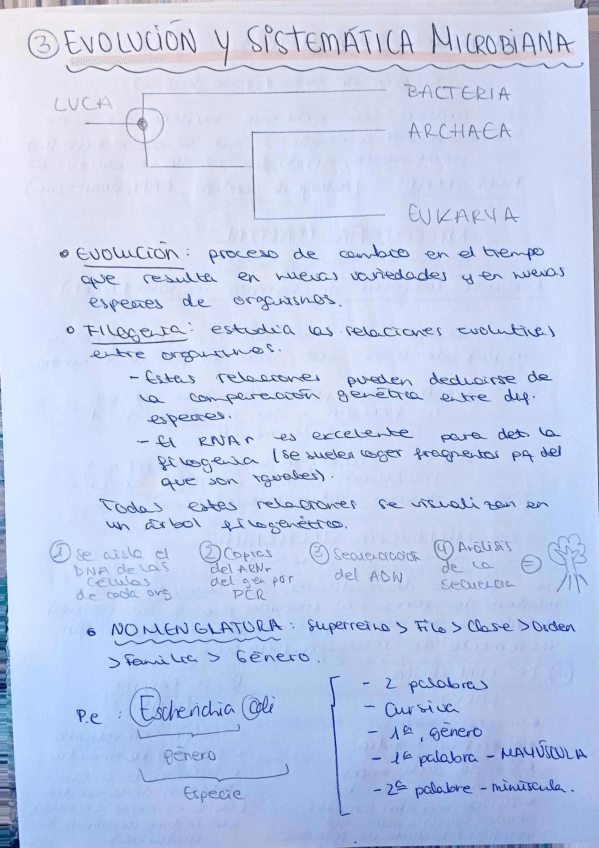 ③ EVOLUCIÓN Y SISTEMÁTICA MICROBIANA
LUCA
BACTERIA
ARCHAEA
EUKARYA
• Evolución: proceso de cambio en el tiempo
que resulta en nuevas variedades y en nuevas
especies de organismos.
• Filogenia: estudia las relaciones evolutivas
entre organismos.
- Estas relaciones pueden deducirse de
la comparación genética entre dif.
especies.
- El RNAr es excelente para det. la
filogenia (se suelen coger fragmentos pq del
que son iguales).
Todas estas relaciones se visualizan en
un árbol filogenético.
① Se aisla el
DNA de las
células
de cada org.
② Copias
del ARNr
del gen por
PCR
③ Secuenciación
del ADN
④ Análisis
de la
secuencia
=
• NOMENCLATURA: Superreino > Filo > Clase > Orden
> Familia > Género.
P.e : Escherichia Coli
género
Especie
- 2 palabras
- Cursiva
- 1ª, género
- 1ª palabra - MAYÚSCULA
- 2ª palabra - minúscula.